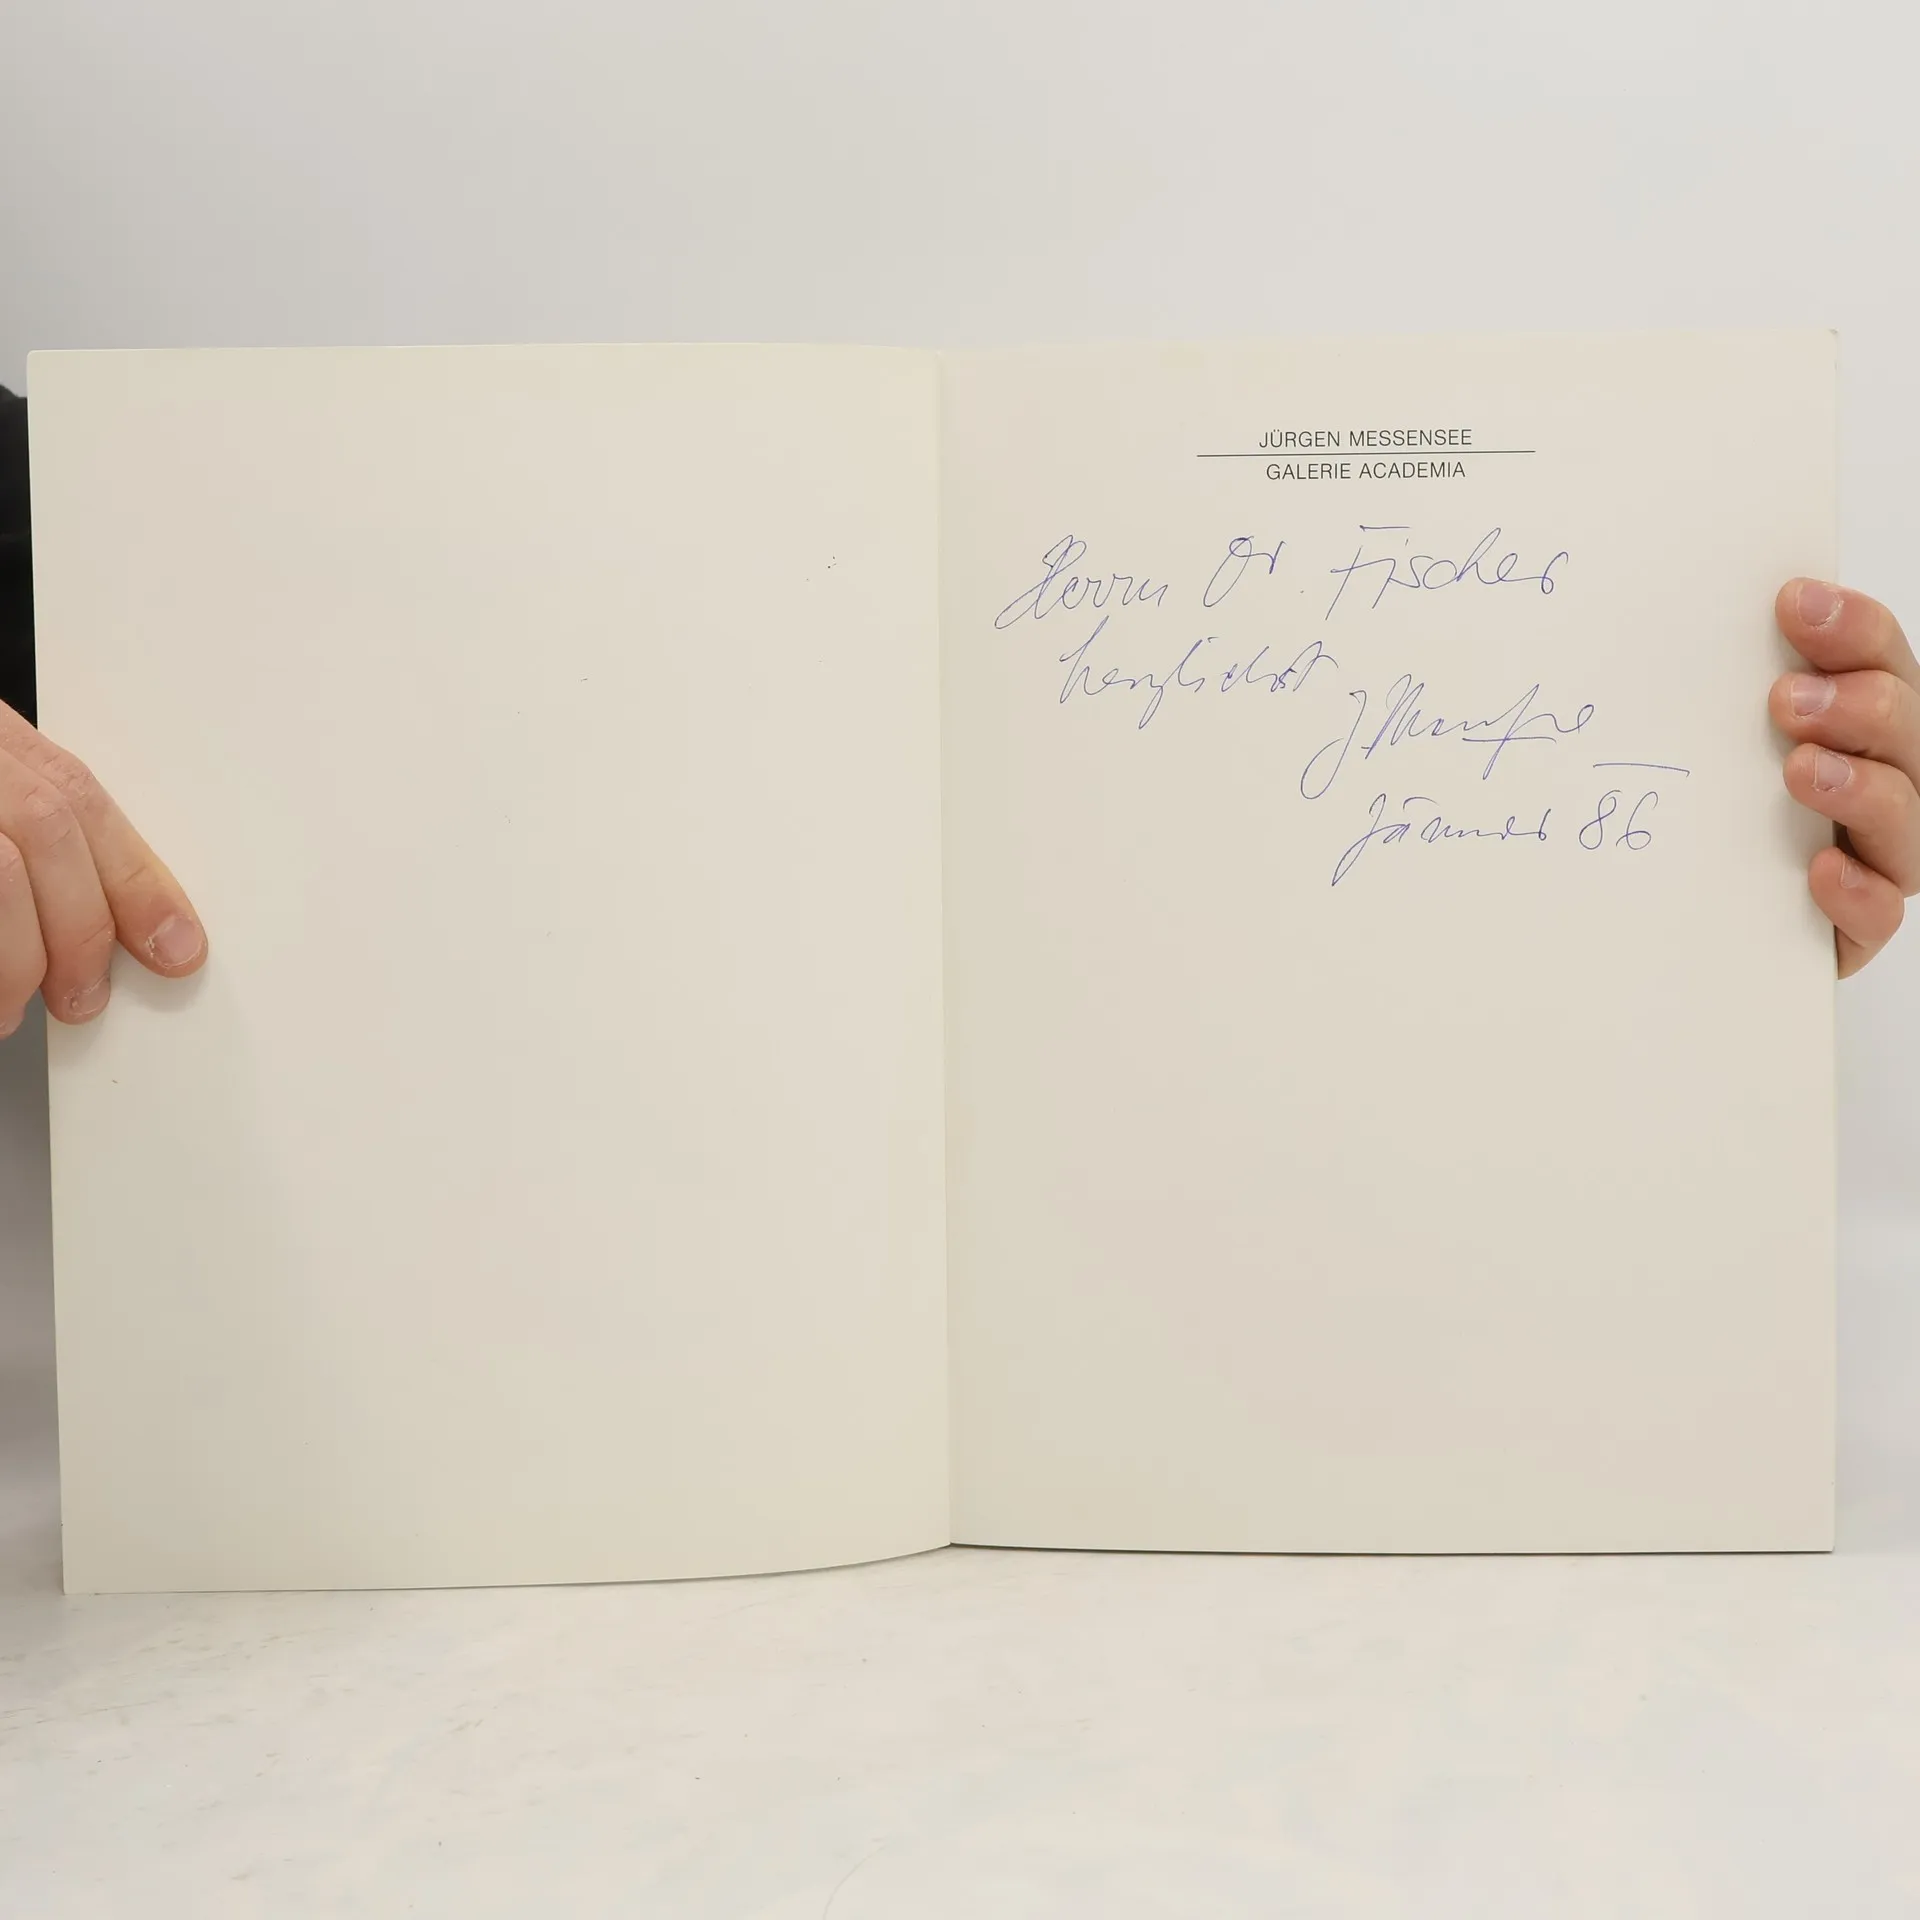 JÜRGEN MESSENSEE
GALERIE ACADEMIA
Herrn Dr. Fischer
herzlichst
Jänner 86